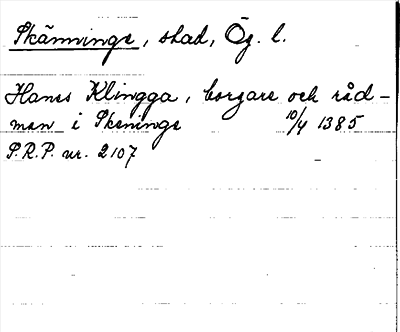 Skänninge, stad, Ög. l.
Hanss Klingga, borgare och råd-
man i Skeninge 10/4 1385
S.R.P. nr. 2107